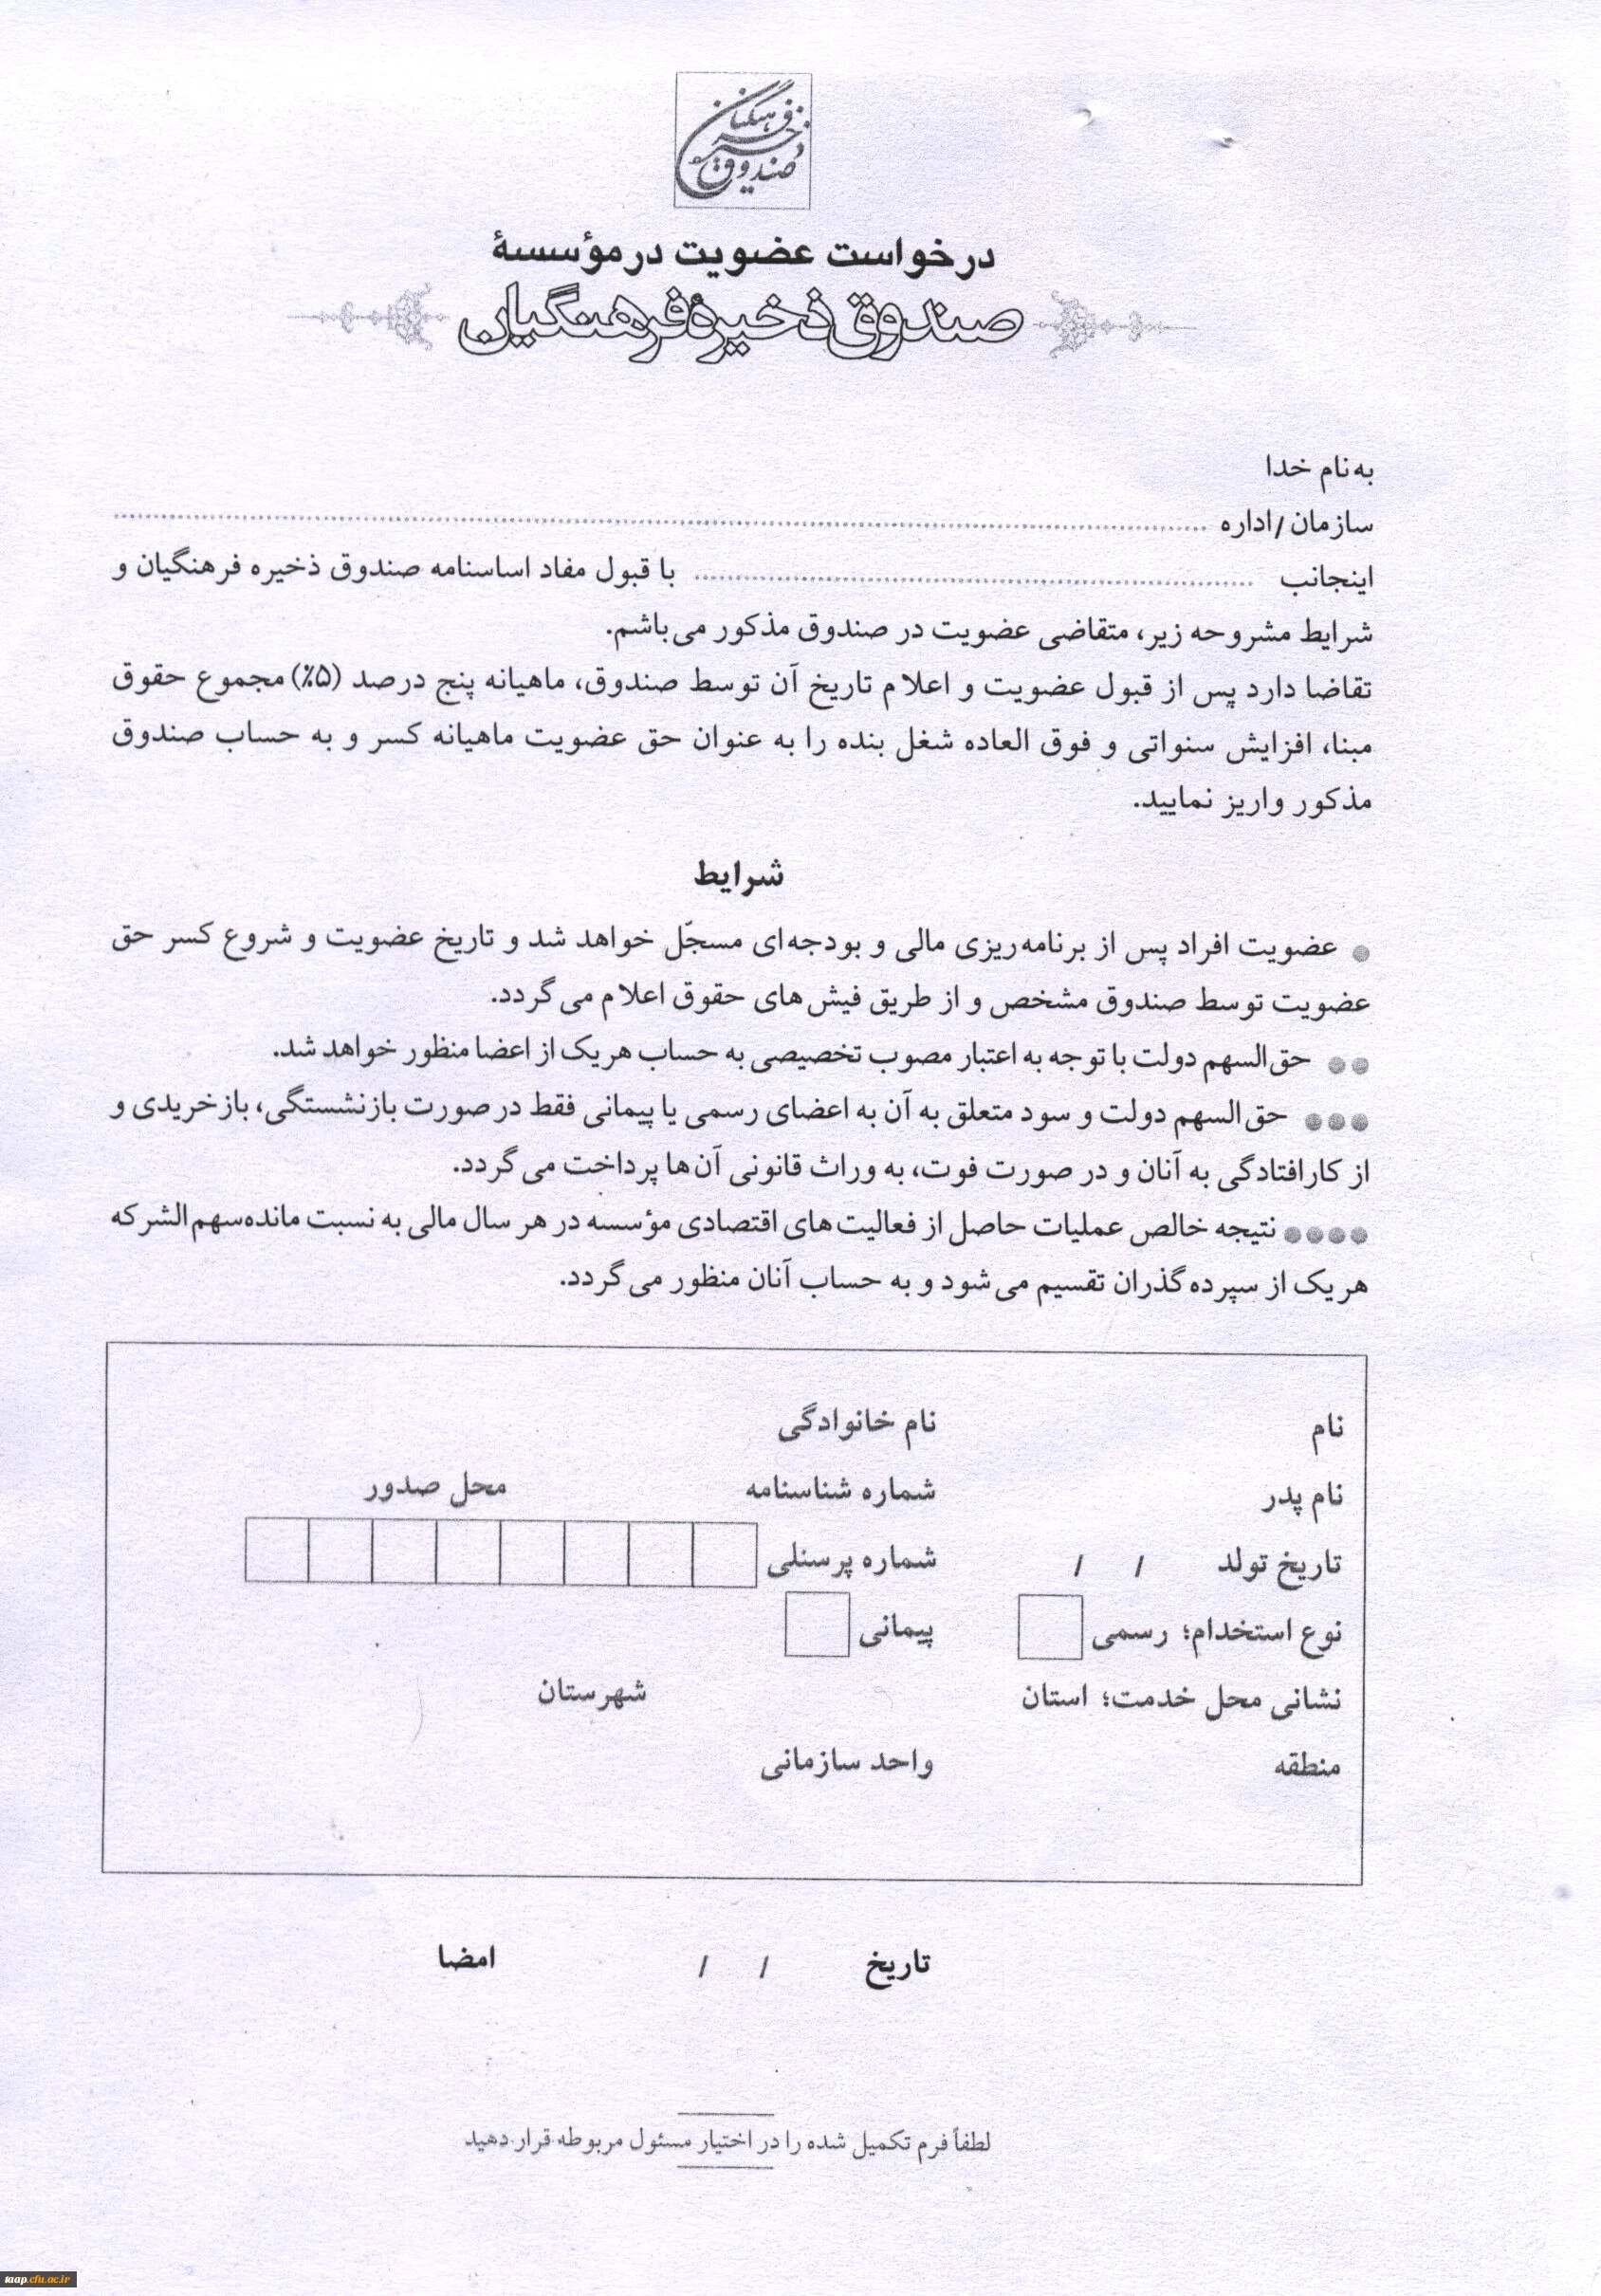 صندوق ذخیره فرهنگیان
درخواست عضویت در مؤسسهٔ
صندوق ذخیرهٔ فرهنگیان
به نام خدا
سازمان/اداره ........................................
اینجانب ........................................ با قبول مفاد اساسنامه صندوق ذخیره فرهنگیان و
شرایط مشروحه زیر، متقاضی عضویت در صندوق مذکور می‌باشم.
تقاضا دارد پس از قبول عضویت و اعلام تاریخ آن توسط صندوق، ماهیانه پنج درصد (۵٪) مجموع حقوق
مبنا، افزایش سنواتی و فوق العاده شغل بنده را به عنوان حق عضویت ماهیانه کسر و به حساب صندوق
مذکور واریز نمایید.
شرایط
● عضویت افراد پس از برنامه‌ریزی مالی و بودجه‌ای مسجّل خواهد شد و تاریخ عضویت و شروع کسر حق
عضویت توسط صندوق مشخص و از طریق فیش‌های حقوق اعلام می‌گردد.
●● حق‌السهم دولت با توجه به اعتبار مصوب تخصیصی به حساب هریک از اعضا منظور خواهد شد.
●●● حق‌السهم دولت و سود متعلق به آن به اعضای رسمی یا پیمانی فقط در صورت بازنشستگی، بازخریدی و
از کارافتادگی به آنان و در صورت فوت، به وراث قانونی آن‌ها پرداخت می‌گردد.
●●●● نتیجه خالص عملیات حاصل از فعالیت‌های اقتصادی مؤسسه در هر سال مالی به نسبت مانده‌سهم‌الشرکه
هریک از سپرده‌گذران تقسیم می‌شود و به حساب آنان منظور می‌گردد.
نام نام خانوادگی
نام پدر شماره شناسنامه محل صدور
تاریخ تولد / / شماره پرسنلی
نوع استخدام؛ رسمی پیمانی
نشانی محل خدمت؛ استان شهرستان
منطقه واحد سازمانی
تاریخ / / امضا
لطفاً فرم تکمیل شده را در اختیار مسئول مربوطه قرار دهید
taap.cfu.ac.ir